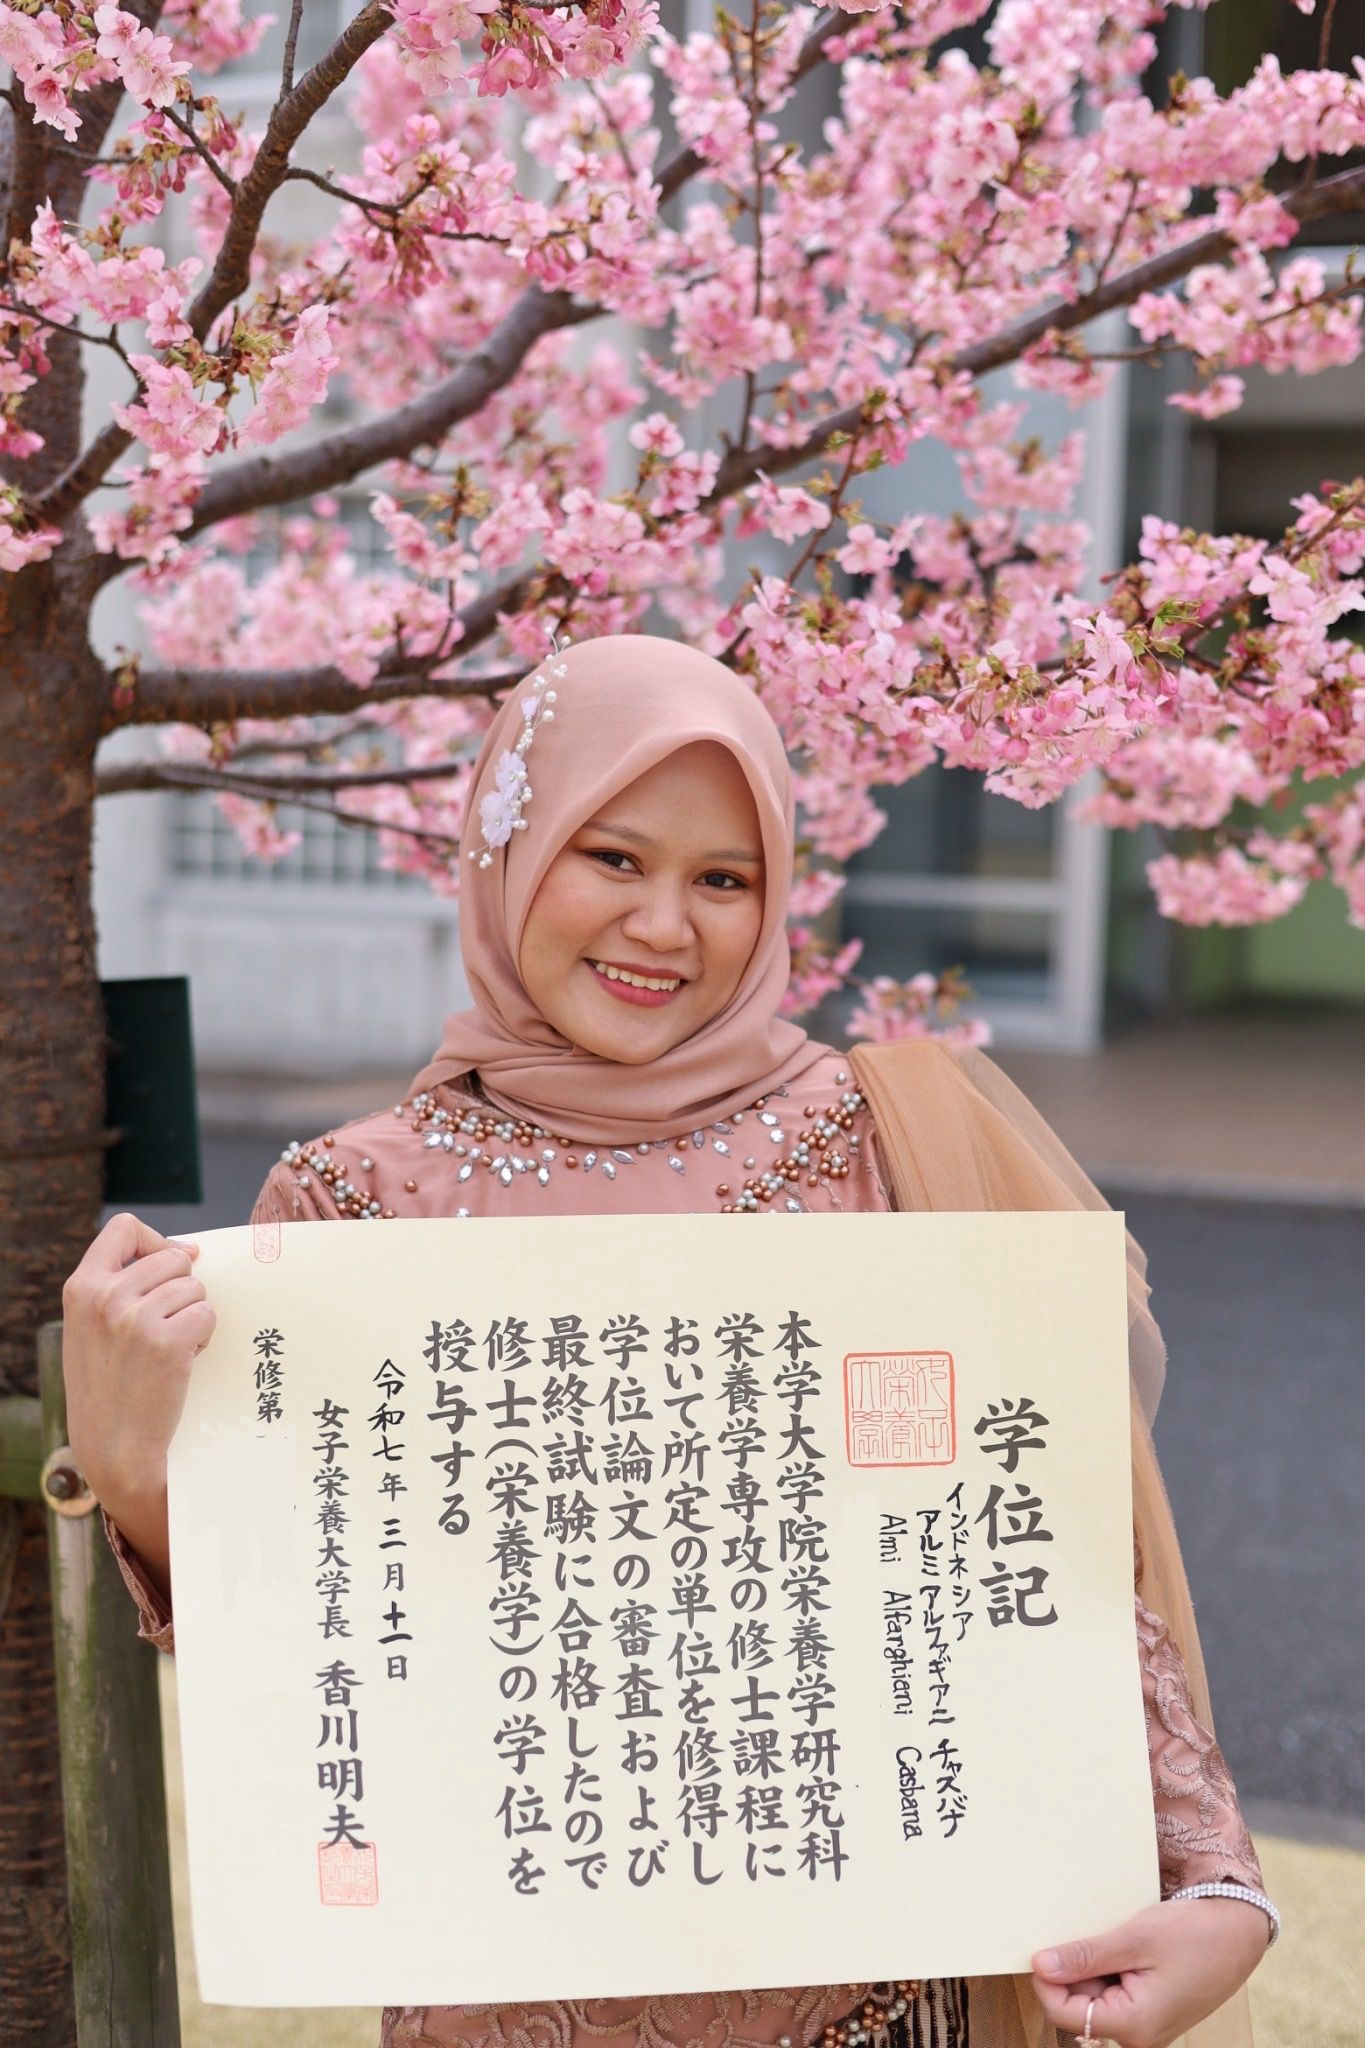 学位記
インドネシア
アルミ アルファギアニ チャスバナ
Almi Alfarghiani Casbana
本学大学院栄養学研究科
栄養学専攻の修士課程に
おいて所定の単位を修得し
学位論文の審査および
最終試験に合格したので
修士(栄養学)の学位を
授与する
令和七年三月十一日
女子栄養大学長 香川明夫
栄修第